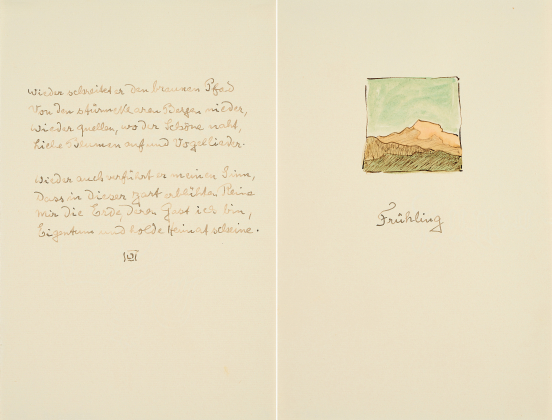 Wieder schreitet er den braunen Pfad
Von den stürmeklaren Bergen nieder,
Wieder quellen, wo der Schöne naht,
Liebe Blumen auf und Vogellieder.
Wieder auch verführt er meinen Sinn,
Dass in dieser zart erblühten Reine
Mir die Erde, deren Gast ich bin,
Eigentum und holde Heimat scheine.
Frühling